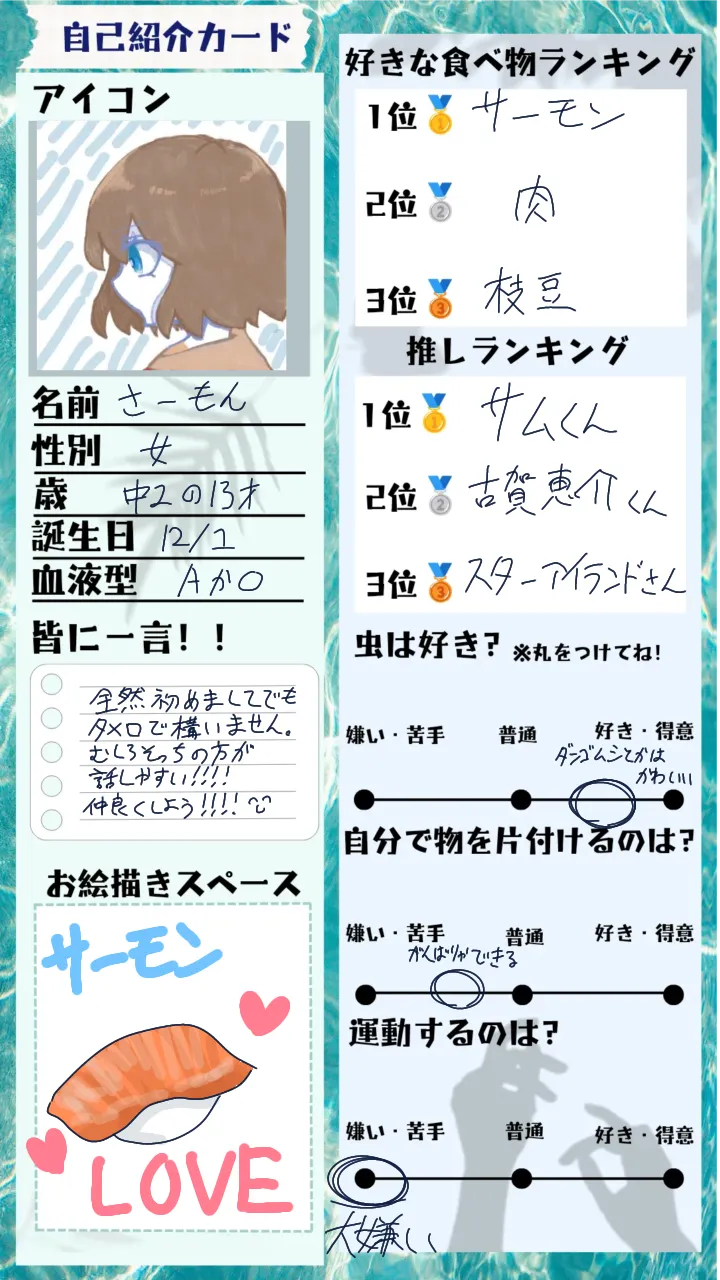 自己紹介カード
アイコン
名前 さーもん
性別 女
歳 中2の13才
誕生日 12/1
血液型 AかO
皆に一言！！
全然初めましてでも
タメ口で構いません。
むしろそっちの方が
話しやすい!!!!
仲良くしよう!!!!
お絵描きスペース
サーモン
LOVE
好きな食べ物ランキング
1位 1 サーモン
2位 2 肉
3位 3 枝豆
推しランキング
1位 1 サムくん
2位 2 古賀恵介くん
3位 3 スターアイランドさん
虫は好き? ※丸をつけてね!
嫌い・苦手 普通 好き・得意
ダンゴムシとかは
かわいい
自分で物を片付けるのは?
嫌い・苦手 普通 好き・得意
がんばりゃできる
運動するのは?
嫌い・苦手 普通 好き・得意
大嫌い